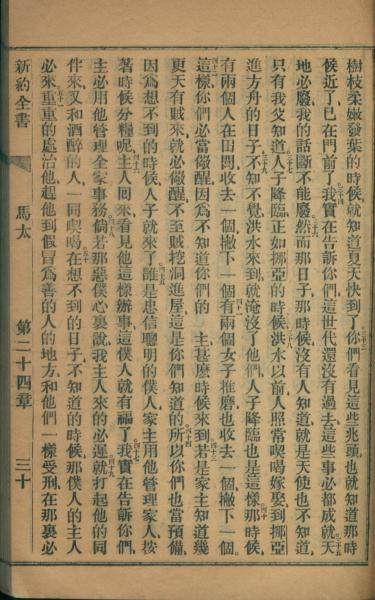 樹枝柔嫩發葉的時候就知道夏天快到了你們看見這些兆頭也就知道那時
候近了已在門前了三十四我實在告訴你們這世代還沒有過去這些事必都成就三十五天
地必廢我的話斷不能廢三十六然而那日子那時候沒有人知道就是天使也不知道
只有我父知道三十七人子降臨正如挪亞的時候三十八洪水以前人照常喫喝嫁娶到挪亞
進方舟的日子三十九不知不覺洪水來到就淹沒了他們人子降臨也是這樣四十那時候
有兩個人在田間收去一個撇下一個四十一有兩個女子推磨也收去一個撇下一個
四十二這樣你們必當儆醒因為不知道你們的 主甚麼時候來到四十三若是家主知道幾
更天有賊來就必儆醒不至賊挖洞進屋這是你們知道的四十四所以你們也當預備
因為想不到的時候人子就來了四十五誰是忠信聰明的僕人家主用他管理家人按
著時候分糧呢四十六主人回來看見他這樣辦事這僕人就有福了四十七我實在告訴你們
主必用他管理全家事務四十八倘若那惡僕心裏說我主人來的必遲四十九就打起他的同
伴來又和酒醉的人一同喫喝五十在想不到的日子不知道的時候那僕人的主人
必來五十一重重的處治他趕他到假冒為善的人的地方和他們一樣受刑在那裏必
新約全書 馬太 第二十四章 三十